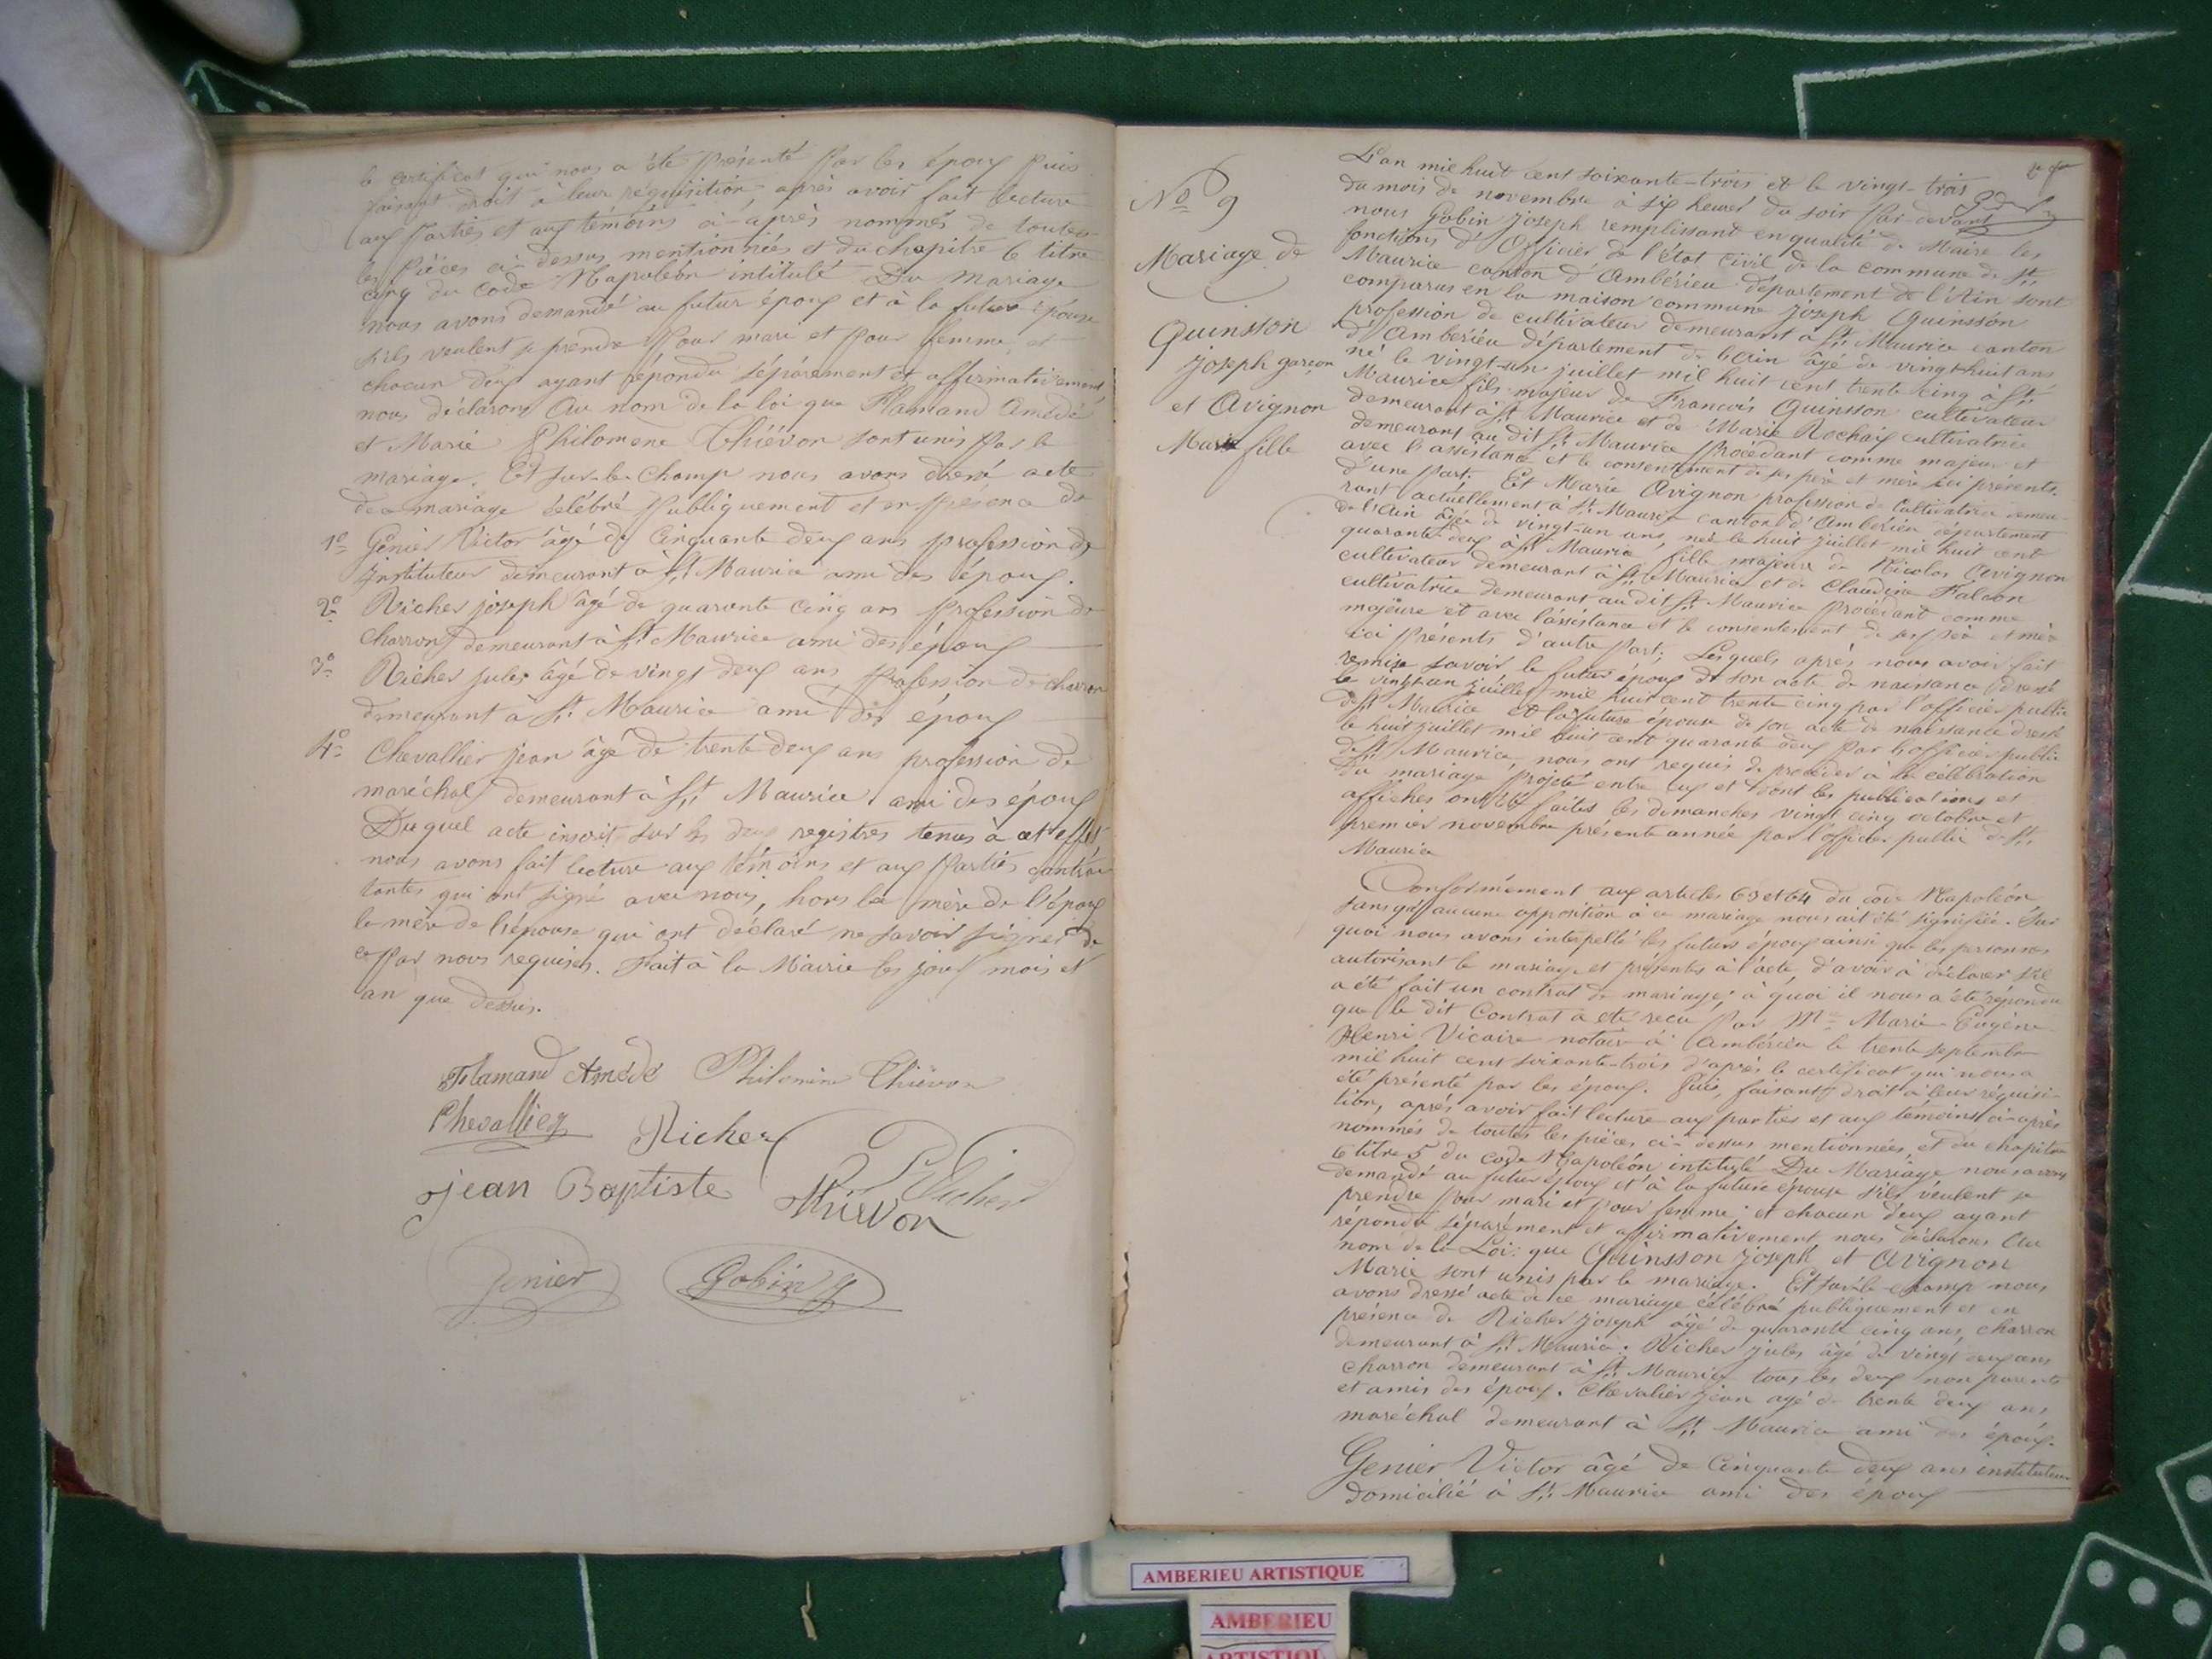 le certificat qui nous a été présenté par les époux puis
faisant droit à leur réquisition après avoir fait lecture
aux parties et aux témoins ci-après nommés de toutes
les pièces ci-dessus mentionnées et du chapitre 6 titre
cinq du Code Napoléon intitulé Du Mariage
nous avons demandé au futur époux et à la future épouse
s'ils veulent se prendre pour mari et pour femme, et
chacun d'eux ayant répondu séparément et affirmativement
nous déclarons Au nom de la loi que Flamand Amédé
et Marie Philomene Thiévon sont unis par le
mariage. Et sur-le-champ nous avons dressé acte
de ce mariage célébré publiquement et en présence de
1º Génier Victor âgé de Cinquante deux ans profession de
instituteur demeurant à St Maurice ami des époux.
2º Richer joseph âgé de quarante cinq ans profession de
charron demeurant à St Maurice ami des époux
3º Richer jules âgé de vingt deux ans profession de charron
demeurant à St Maurice ami des époux
4º Chevallier jean âgé de trente deux ans profession de
maréchal demeurant à St Maurice ami des époux
Duquel acte inscrit sur les deux registres tenus à cet effet
nous avons fait lecture aux témoins et aux parties contrac
tantes qui ont signé avec nous, hors la mère de l'époux
la mère de l'épouse qui ont déclaré ne savoir signer de
ce par nous requises. Fait à la Mairie les jour mois et
an que dessus.
Flamand Amédé Philomine Thiévon
Chevallier Richer
jean Baptiste Thievon
Genier Gobin J
No 9
Mariage de
Quinsson
Joseph garçon
et Avignon
Marie fille
L'an mil huit cent soixante-trois et le vingt-trois
du mois de novembre à six heures du soir par-devant
nous Gobin Joseph remplissant en qualité de Maire les
fonctions d'Officier de l'état Civil de la commune de St
Maurice canton d'Ambérieu département de l'Ain sont
comparus en la maison commune Joseph Quinsson
profession de cultivateur demeurant à St Maurice canton
d'Ambérieu département de l'Ain âgé de vingt-huit ans
né le vingt-un juillet mil huit cent trente cinq à St
Maurice fils majeur de François Quinsson cultivateur
demeurant à St Maurice et de Marie Rochaix cultivatrice
demeurant au dit St Maurice procédant comme majeur et
avec l'assistance et le consentement de ses père et mère ici présents.
d'une part. Et Marie Avignon profession de Cultivatrice demeu-
rant actuellement à St Maurice canton d'Ambérieu département
de l'Ain âgée de vingt-un ans, née le huit juillet mil huit cent
quarante-deux à St Maurice fille majeure de Nicolas Avignon
cultivateur demeurant à St Maurice et de Claudine Falcon
cultivatrice demeurant au dit St Maurice procédant comme
majeure et avec l'assistance et le consentement de ses père et mère
ici présents d'autre part; Lesquels après nous avoir fait
remise savoir le futur époux de son acte de naissance dressé
le vingt-un juillet mil huit cent trente cinq par l'officier public
de St Maurice et la future épouse de son acte de naissance dressé
le huit juillet mil huit cent quarante deux par l'officier public
de St Maurice, nous ont requis de procéder à la célébration
du mariage projeté entre eux et dont les publications et
affiches ont été faites les dimanches vingt cinq octobre et
premier novembre présente année par l'officier public de St
Maurice
Conformément aux articles 63 et 64 du code Napoléon
sans qu'aucune opposition à ce mariage nous ait été signifiée. Sur
quoi nous avons interpellé les futurs époux ainsi que les personnes
autorisant le mariage et présentes à l'acte, d'avoir à déclarer s'il
a été fait un contrat de mariage; à quoi il nous a été répondu
que le dit Contrat a été reçu par Me Marie-Eugène
Henri Vicaire notaire à Ambérieu le trente septembre
mil huit cent soixante-trois d'après le certificat qui nous a
été présenté par les époux. Puis, faisant droit à leur réquisi-
tion, après avoir fait lecture aux parties et aux témoins ci-après
nommés de toutes les pièces ci-dessus mentionnées, et du chapitre
6 titre 5 du code Napoléon intitulé Du Mariage nous avons
demandé au futur époux et à la future épouse s'ils veulent se
prendre pour mari et pour femme; et chacun d'eux ayant
répondu séparément et affirmativement nous déclarons Au
nom de la Loi: que Quinsson Joseph et Avignon
Marie sont unis par le mariage. Et sur-le-champ nous
avons dressé acte de ce mariage célébré publiquement et en
présence de Richer Joseph âgé de quarante cinq ans, charron
demeurant à St Maurice. Richer jules âgé de vingt deux ans
charron demeurant à St Maurice tous les deux non parents
et amis des époux. Chevalier jean agé de trente deux ans
maréchal demeurant à St Maurice ami des époux.
Genier Victor âgé de Cinquante deux ans instituteur
domicilié à St Maurice ami des époux
AMBERIEU ARTISTIQUE
AMBERIEU
ARTISTIQUE